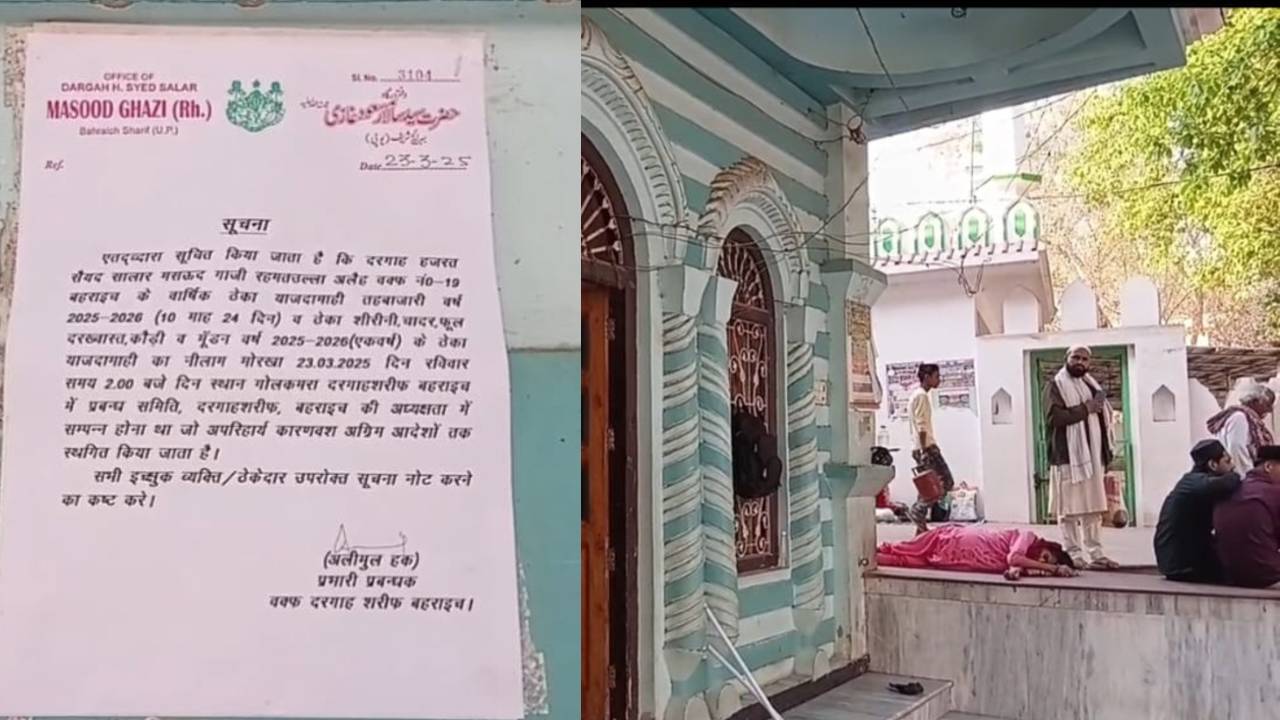 OFFICE OF
DARGAH H. SYED SALAR
MASOOD GHAZI (Rh.)
Bahraich Sharif (U.P.)
Sl. No. 3104
حضرت سید سالار مسعود غازی
بہرائچ شریف (یو پی)
Ref.
Date 23-3-25
सूचना
एतद्द्वारा सूचित किया जाता है कि दरगाह हजरत
सैयद सालार मसऊद गाजी रहमततल्ला अलैह वक्फ नं0-19
बहराइच के वार्षिक ठेका याजदामाही तहबाजारी वर्ष
2025-2026 (10 माह 24 दिन) व ठेका शीरीनी,चादर,फूल
दरख्वास्त,कौड़ी व मूँडन वर्ष 2025-2026(एकवर्ष) के ठेका
याजदामाही का नीलाम मोरखा 23.03.2025 दिन रविवार
समय 2.00 बजे दिन स्थान गोलकमरा दरगाहशरीफ बहराइच
में प्रबन्ध समिति, दरगाहशरीफ, बहराइच की अध्यक्षता में
सम्पन्न होना था जो अपरिहार्य कारणवश अग्रिम आदेशों तक
स्थगित किया जाता है।
सभी इच्छुक व्यक्ति/ठेकेदार उपरोक्त सूचना नोट करने
का कष्ट करे।
(अलीमुल हक)
प्रभारी प्रबन्धक
वक्फ दरगाह शरीफ बहराइच।